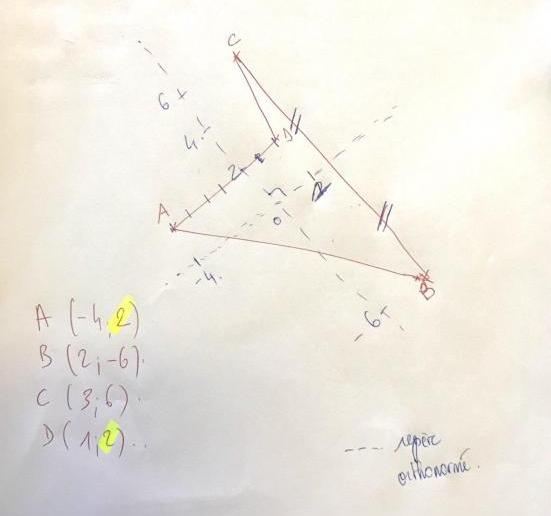 C
6
4
D
2
2
A
0
-4
B
-6
A (-4;2)
B (2;-6).
C (3;6).
D (1;2)..
---- repère
orthonormé.